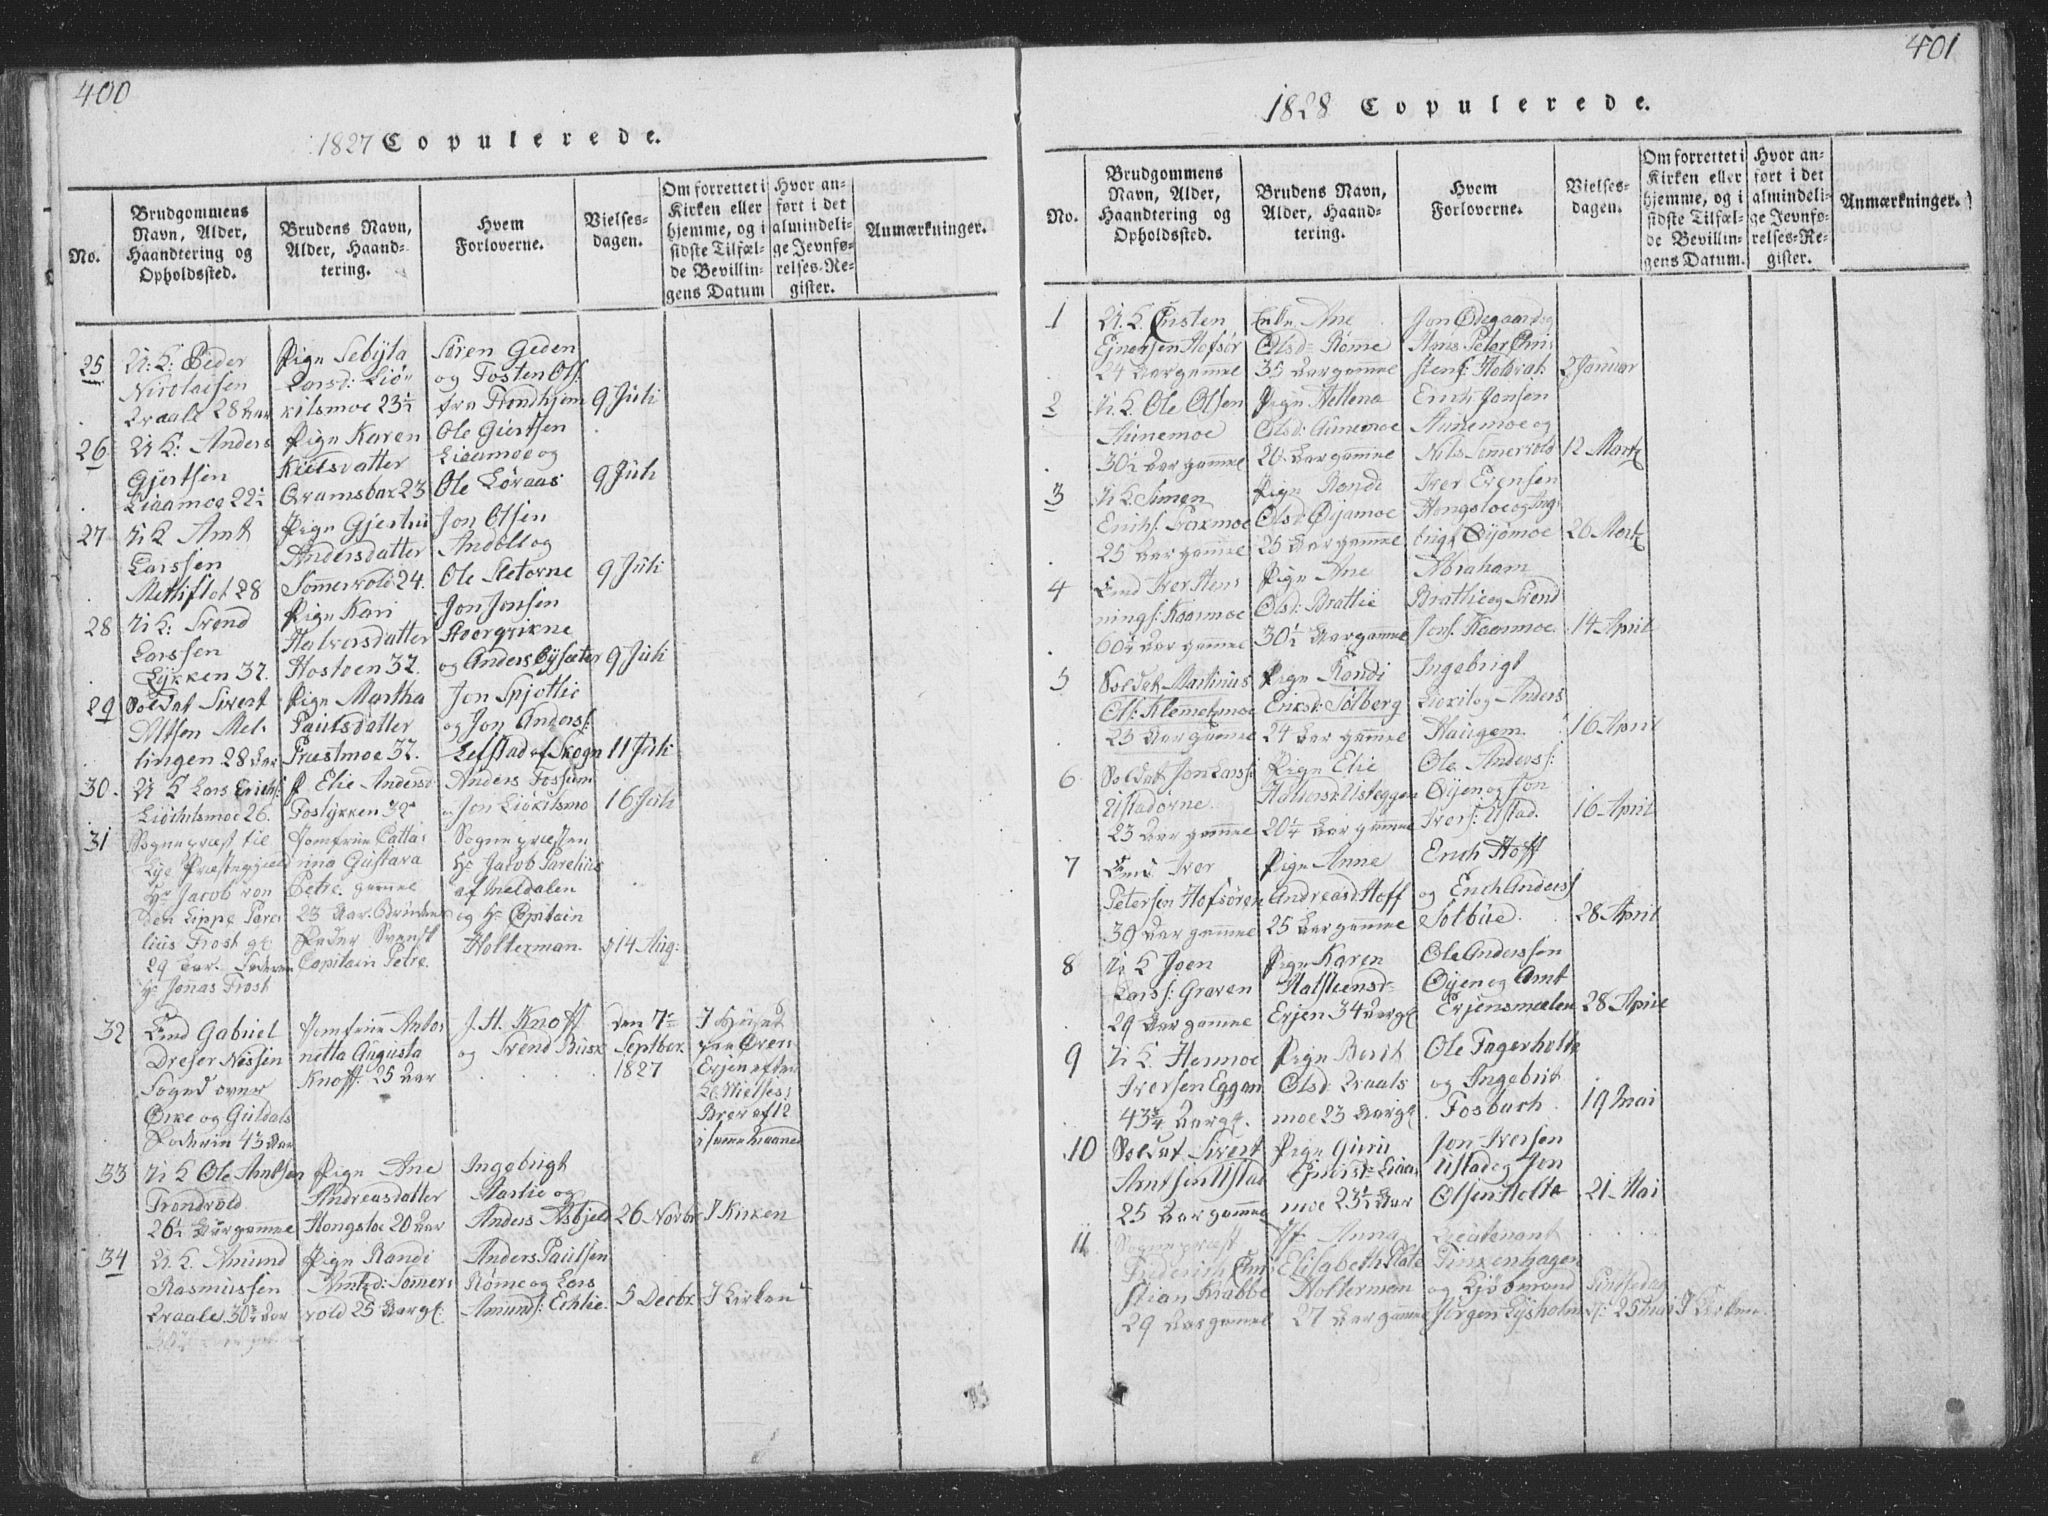 400
1827 Copulerede.
No.
Brudgommens
Navn, Alder,
Haandtering og
Opholdssted.
Brudens Navn,
Alder, Haand-
tering.
Hvem
Forloverne.
Vielses-
dagen.
Om forrettet i
Kirken eller
hjemme, og i
sidste Tilfæl-
de Bevillin-
gens Datum
Hvor an-
ført i det
almindeli-
ge Jevnfø-
relses-Re-
gister.
Anmærkninger.
25
U: K: Peder
Nicolaisen
28 Aar
Pige Sebyla
Larsd:
kilsmoe 23½
Søren Geden
og Tosten Ols:
fra Trondhjem
9 Juli
26
U K: Anders
Gjertsen
Liaamoe 22½
Pige Karen
Kiilsdatter
23
Ole Giertsen
Liaamoe og
Ole Løraas
9 Juli
27
U K Arnt
Larssen
Metliflot 28
Pige Gjertru
Andersdatter
Sommervold 24.
Jon Olsen
og
Ole Sletorne
9 Juli
28
U K: Trond
Larssen
Lykken 32.
Pige Kari
Halversdatter
32.
Jon Jonsen
og Anders Bysæter
9 Juli
29
Soldat Sivert
Olsen Mel-
lingen 28 Aar
Pige Martha
Paulsdatter
Præstmoe 32.
Jon Spjotlie
og Jon Anders:
Lefstad af Skogn
11 Juli
30.
U K Lars Erichs:
26.
P. Elie Andersd:
32
Anders Fossum
Jon
16 Juli
31
Sognepræst til
Bye Præstegjæld
Hr Jacob von
den Lippe Pare-
lius Trost g:
29 Aar. Faderen
Hr Jonas Trost
Jomfrue Catta-
rina Gustava
Petre gamle
23 Aar.
Fader Svensk
Capitain Petre.
Sognepræsten
Hr Jacob Parelius
af Meldalen
og Hr Capitain
Holterman.
d 14 Aug:
32
Gabriel
Dreser Nissen
Foged over
Orke og Guldals
Foderie 43 Aar
Jomfrue Anto-
netta Augusta
Knoff. 25 Aar
J. H. Knoff
og Svend Busk
Den 7e
Septber
1827
I Huset
paa Øver
Erjen efter
af 12
samme Maaned
33
U K Ole Arntsen
Trondvold
26½ Aar gamle
Pige Ane
Andreasdatter
Hongsloe 20 Aar
Ingebrigt
og
Anders Asbjeld
26 Novbr
I Kirken
34
U K. Amund
Rasmussen
30¾ Aar
Pige Randi
Arntsd: Somer-
vold 25 Aar g:
Anders Paulsen
Rømme og Lars
Amunds: Echlie.
5 Decbr.
I Kirken
401
1828 Copulerede.
No.
Brudgommens
Navn, Alder,
Haandtering og
Opholdssted.
Brudens Navn,
Alder, Haand-
tering.
Hvem
Forloverne.
Vielses-
dagen.
Om forrettet i
Kirken eller
hjemme, og i
sidste Tilfæl-
de Bevillin-
gens Datum.
Hvor an-
ført i det
almindeli-
ge Jevnfø-
relses-Re-
gister.
Anmærkninger.
1
U. K. Christen
Ejnersen Hofsør
24 Aar gamle
Enke Ane
Olsd: Rømme
35 Aar gamle
Jon Ødegaard og
Hans Peter Chri-
stens: Holdval
2 Januar
2
U K Ole Olsen
Aunemoe
30½ Aar gamle
Pige Hellena
Olsd: Aunemoe
20 Aar gamle
Erich Jonsen
Aunemoe og
Nils Somervold
12 Martz
3
U K Simen
Erichs:
25 Aar gamle
Pige Randi
Olsd: Øyamoe
25 Aar gamle
Iver Evensen
Hongsloe og Ing-
Øyamoe
26 Martz
4
Iver Hen-
nings: Kaasmoe
60½ Aar gamle
Pige Ane
Olsd: Brattlie
30½ Aar gamle
Abraham
Brattlie og Svend
Jons: Kaasmoe.
14 April
5
Soldat Martinus
Ols: Klemetzmoe
23 Aar gamle
Pige Randi
Eriksd: Solberg
24 Aar gamle
Ingebrigt
og Anders
Haugen.
16 April
6
Soldat Jon Larss:
Ustadorne
23 Aar gamle
Pige Elie
Halvorsd:
20¼ Aar gamle
Ole Anderss:
Øyen og Jon
Ivers: Ustad.
16 April
7
Iver
Petersen Hofsøren
30 Aar gamle
Pige Anne
Andreasd Hoff
25 Aar gamle
Erich Hoff
og Erich Anderss
Solbue.
28 April
8
U K Joen
Larss: Graven
29 Aar gamle
Pige Karen
Halsteensd:
Erjen 34 Aar g:
Ole Anderssen
Øyen og Arnt
Erjensmælen
28 April
9
U K. Hermoe
Iversen Eggan
43¾ Aar g:
Pige Berit
Olsd:
moe 23 Aar g:
Ole Fagerholte
og Ingebrit
Fosbach.
19 Mai
10
Soldat Sivert
Arntsen Ustad
25 Aar gamle
Pige Guru
Ejnersd: Liaa-
moe 23½ Aar
Jon Iversen
Ustad og Jon
Olsen Holte
21 Mai
11
Sognepræst
Friderich Chri-
stian Krabbe
29 Aar gamle
Jf. Anna
Elisabeth Plate
Holterman
27 Aar gamle
Lieutenant
Finkenhagen
og Kjøbmand
Jørgen Lysholm
Pintsedag
d: 25 Mai
I Kirken.